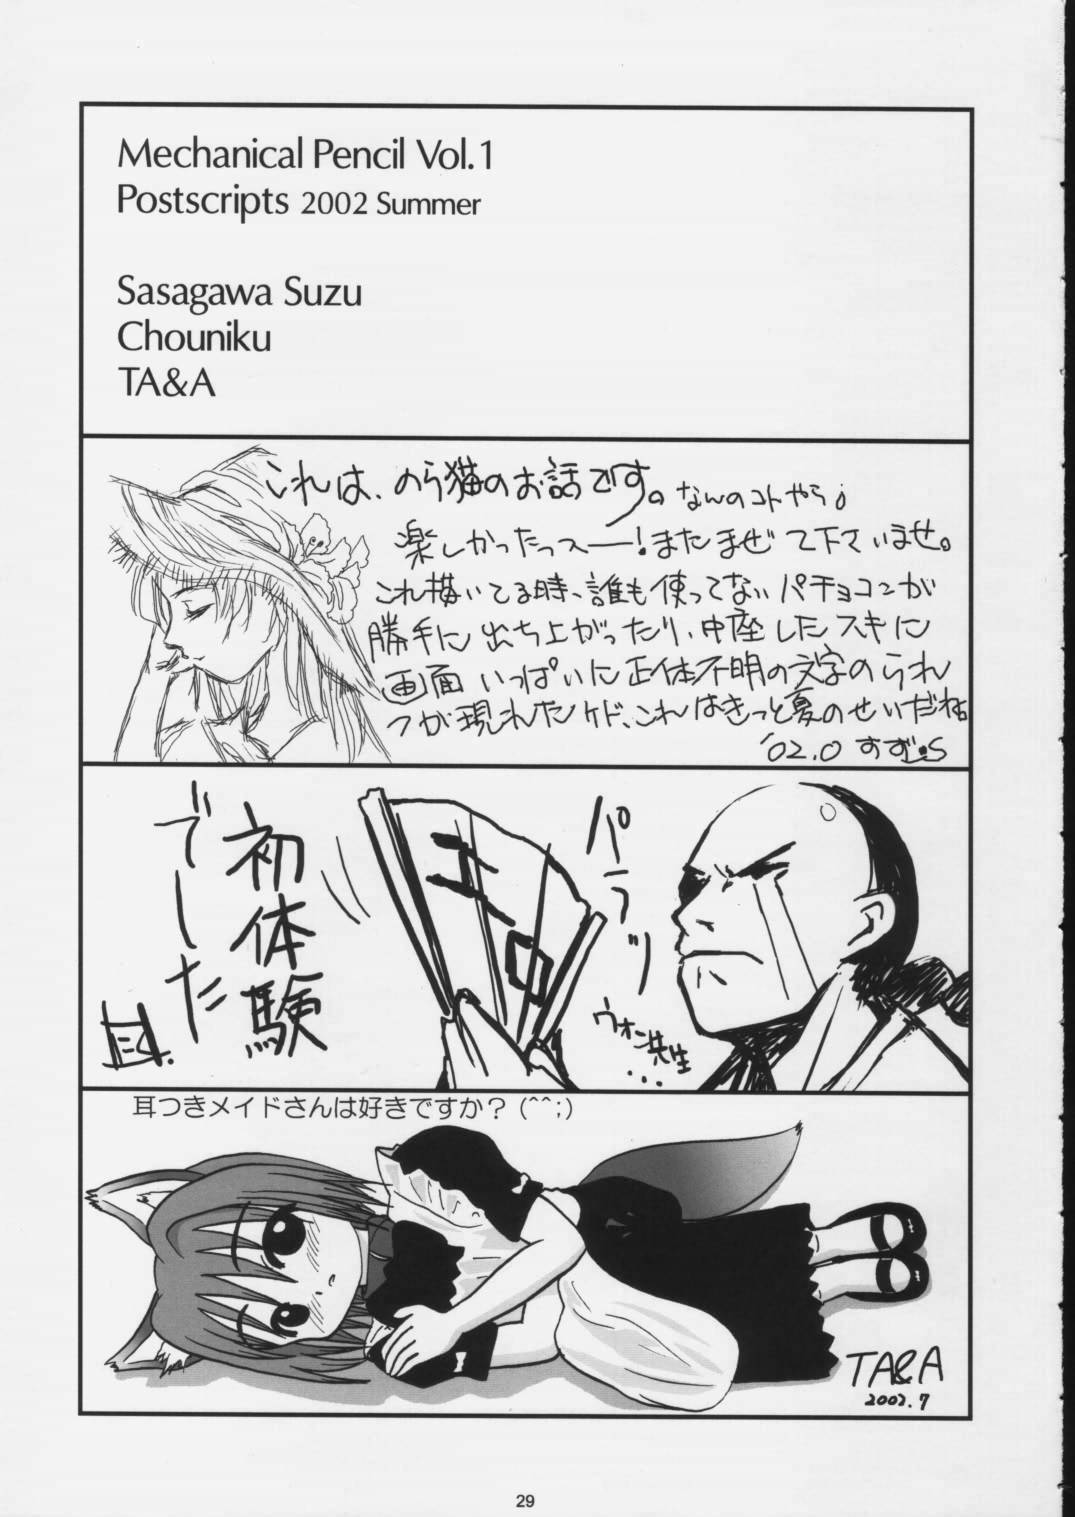 Mechanical Pencil Vol.1
Postscripts 2002 Summer
Sasagawa Suzu
Chouniku
TA&A
これは、のら猫のお話です。なんのコトやら。
楽しかったっスー!またまぜて下さいませ。
これ描いてる時、誰も使ってないパチョコンが
勝手に出ち上がったり、中座したスキに
画面いっぱいに正体不明の文字のられ
つが現れたんケド、これはきっと夏のせいだね。
'02.0 すず
パラッ
エロ
ウォン先生
・・・
初体験
でした
耳つきメイドさんは好きですか?(^^;)
TA&A
2002.7
29